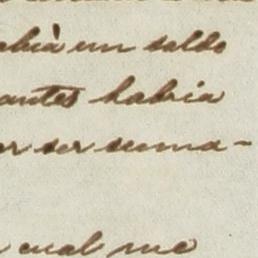 abià un saldo
antes habria
er ser suma-
cual me